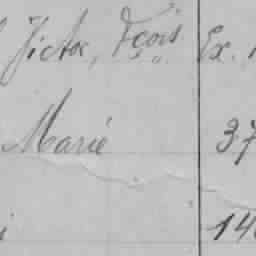 Victor, Fçois Ex.
Marie 37
i 14